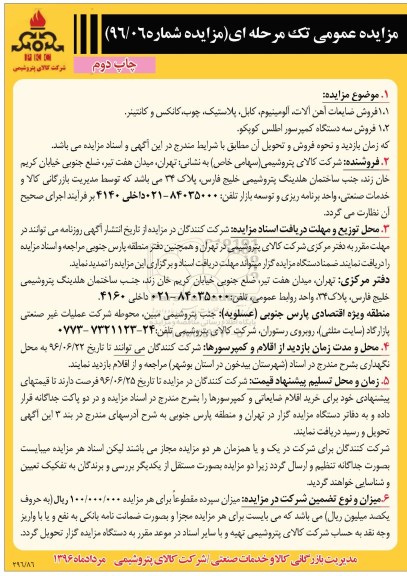 مزایده عمومی تک مرحله ای(مزایده شماره۹۶/۰۶)
چاپ دوم
شرکت کالای پتروشیمی
۱. موضوع مزایده:
۱.۱فروش ضایعات آهن آلات، آلومینیوم، کابل، پلاستیک، چوب،کانکس و کانتینر.
۱.۲ فروش سه دستگاه کمپرسور اطلس کوپکو.
که زمان بازدید و نحوه فروش و تحویل آن مطابق با شرایط مندرج در این آگهی و اسناد مزایده می باشد.
۲. فروشنده: شرکت کالای پتروشیمی(سهامی خاص) به نشانی: تهران، میدان هفت تیر، ضلع جنوبی خیابان کریم
خان زند، جنب ساختمان هلدینگ پتروشیمی خلیج فارس، پلاک ۳۴ می باشد که توسط مدیریت بازرگانی کالا و
خدمات صنعتی، واحد برنامه ریزی و توسعه بازار تلفن: ۸۴۰۳۵۰۰۰-۰۲۱داخلی ۴۱۴۰ بر فرآیند اجرای صحیح
آن نظارت می گردد.
۳. محل توزیع و مهلت دریافت اسناد مزایده: شرکت کنندگان در مزایده از تاریخ انتشار آگهی روزنامه می توانند در
مهلت مقرر به دفتر مرکزی شرکت کالای پتروشیمی در تهران و همچنین دفتر منطقه پارس جنوبی مراجعه و اسناد مزایده
را دریافت نمایند. ضمنا دستگاه مزایده گزار میتواند مهلت دریافت اسناد و برگزاری این مزایده را تمدید نماید.
دفتر مرکزی: تهران، میدان هفت تیر، ضلع جنوبی خیابان کریم خان زند، جنب ساختمان هلدینگ پتروشیمی
خلیج فارس، پلاک۳۴، واحد روابط عمومی، تلفن: ۸۴۰۳۵۰۰۰-۰۲۱ داخلی ۴۱۶۰.
منطقه ویژه اقتصادی پارس جنوبی (عسلویه): جنب پتروشیمی مبین، محوطه شرکت عملیات غیر صنعتی
پازارگاد (سایت مثلثی)، روبروی رستوران، شرکت کالای پتروشیمی تلفن:۲۴-۷۳۲۱۱۲۳ -۰۷۷۳
۴. محل و مدت زمان بازدید از اقلام و کمپرسورها: شرکت کنندگان می توانند تا تاریخ ۹۶/۰۶/۲۲ به محل
نگهداری بشرح مندرج در اسناد (شهرستان بیدخون در استان بوشهر) مراجعه و از اقلام بازدید نمایند.
۵. زمان و محل تسلیم پیشنهاد قیمت: شرکت کنندگان در مزایده تا تاریخ ۹۶/۰۶/۲۵ فرصت دارند تا قیمتهای
پیشنهادی خود برای خرید اقلام ضایعاتی و کمپرسورها را بشرح مندرج در اسناد مزایده و در دو پاکت جداگانه قرار
داده و به دفاتر دستگاه مزایده گزار در تهران و منطقه پارس جنوبی به شرح آدرسهای مندرج در بند ۳ این آگهی
تحویل و رسید دریافت نمایند.
شرکت کنندگان برای شرکت در یک و یا همزمان هر دو مزایده مجاز می باشند لیکن اسناد هر مزایده میبایست
بصورت جداگانه تنظیم و ارسال گردد زیرا دو مزایده بصورت مستقل از یکدیگر بررسی و برندگان به تفکیک تعیین
و شناسایی خواهند گردید.
۶.میزان و نوع تضمین شرکت در مزایده: میزان سپرده مقطوعاً برای هر مزایده ۱۰۰/۰۰۰/۰۰۰ ریال(به حروف
یکصد میلیون ریال) می باشد که می بایست برای هر مزایده مجزا و بصورت ضمانت نامه بانکی به نفع و یا با واریز
وجه نقد به حساب شرکت کالای پتروشیمی تهیه و با سایر اسناد در موعد مقرر به دستگاه مزایده گزار تحویل گردد.
مدیریت بازرگانی کالا و خدمات صنعتی /شرکت کالای پتروشیمی - مردادماه ۱۳۹۶
۲۹۶/۸۶